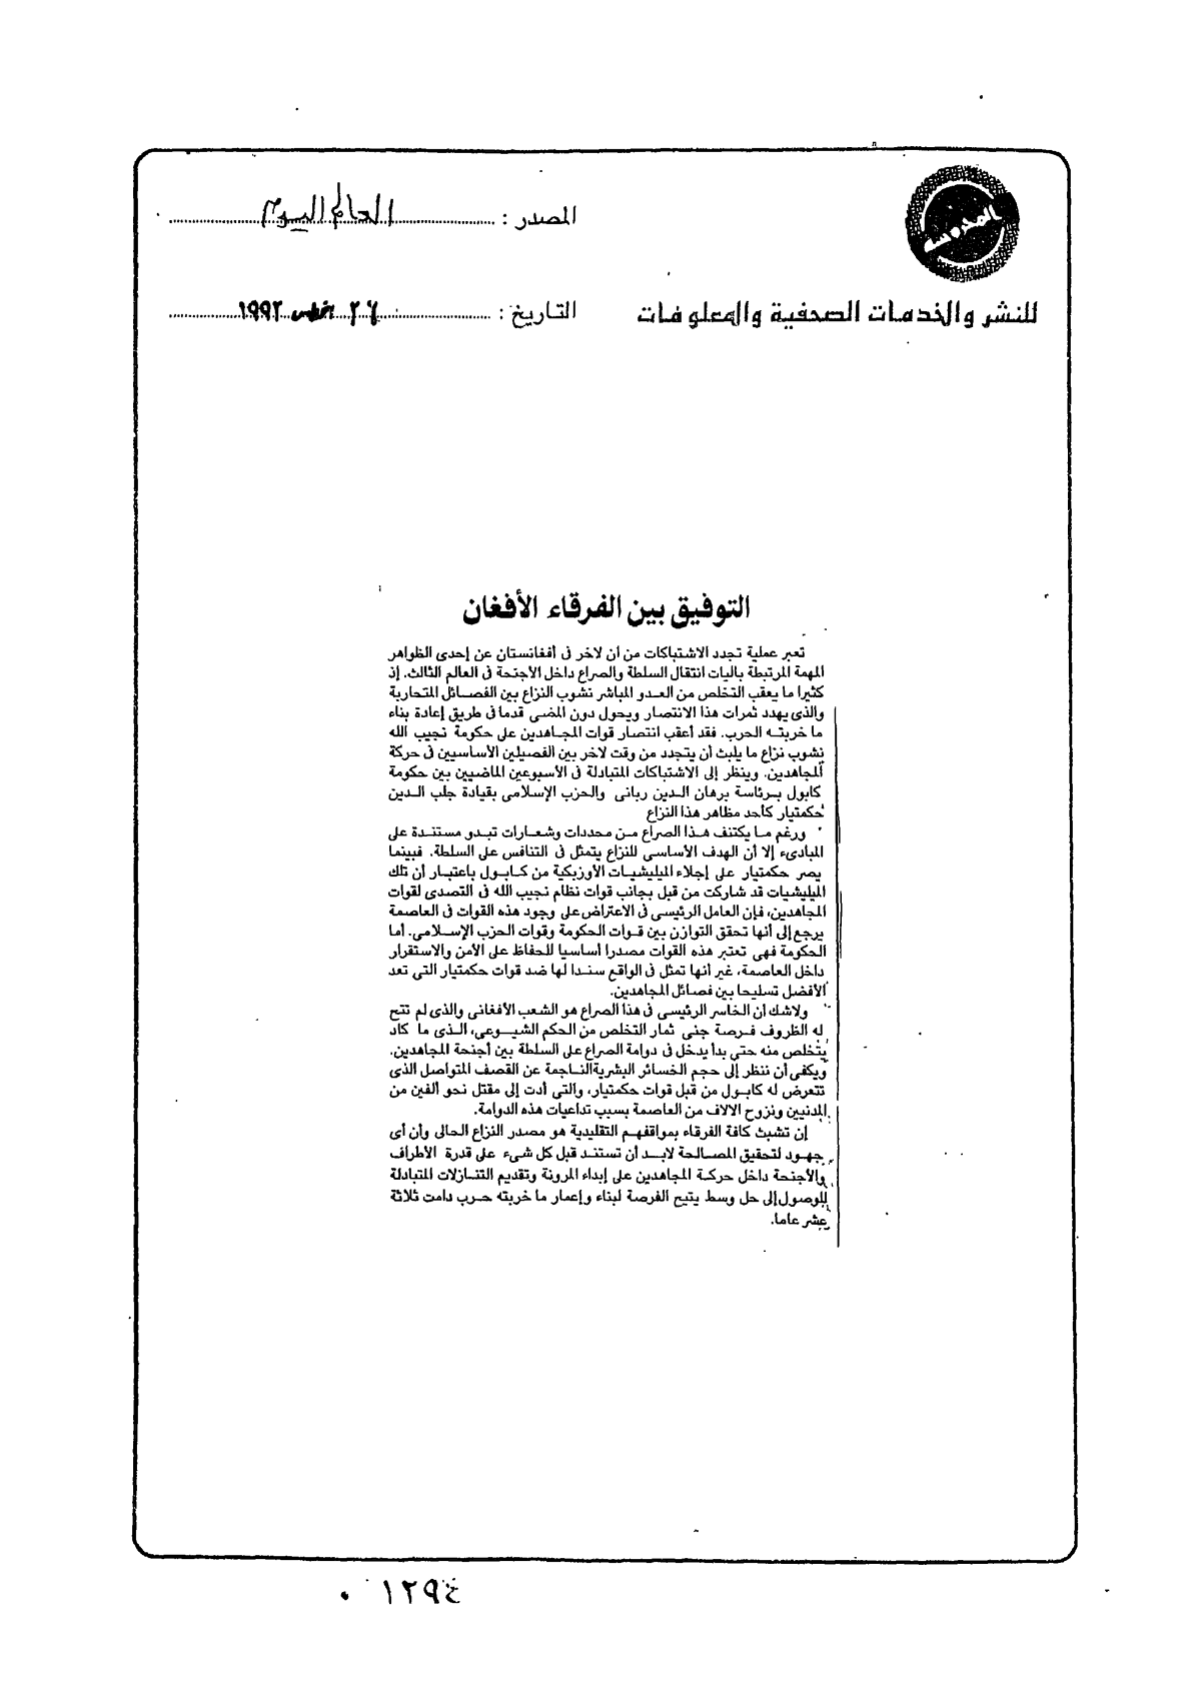 المصدر : العالم اليوم
للنشر والخدمات الصحفية والمعلومات
التاريخ : ٢٦ أغسطس ١٩٩٢
التوفيق بين الفرقاء الأفغان
تعبر عملية تجدد الاشتباكات من آن لآخر فى أفغانستان عن إحدى الظواهر
المهمة المرتبطة بآليات انتقال السلطة والصراع داخل الأجنحة فى العالم الثالث. إذ
كثيرا ما يعقب التخلص من العدو المباشر نشوب النزاع بين الفصائل المتحاربة
والذى يهدد ثمرات هذا الانتصار ويحول دون المضى قدما فى طريق إعادة بناء
ما خربته الحرب. فقد أعقب انتصار قوات المجاهدين على حكومة نجيب الله
نشوب نزاع ما يلبث أن يتجدد من وقت لآخر بين الفصيلين الأساسيين فى حركة
المجاهدين. وينظر إلى الاشتباكات المتبادلة فى الأسبوعين الماضيين بين حكومة
كابول برئاسة برهان الدين ربانى والحزب الإسلامى بقيادة جلب الدين
حكمتيار كأحد مظاهر هذا النزاع
ورغم ما يكتنف هذا الصراع من محددات وشعارات تبدو مستندة على
المبادىء إلا أن الهدف الأساسى للنزاع يتمثل فى التنافس على السلطة. فبينما
يصر حكمتيار على إجلاء الميليشيات الأوزبكية من كابول باعتبار أن تلك
الميليشيات قد شاركت من قبل بجانب قوات نظام نجيب الله فى التصدى لقوات
المجاهدين، فإن العامل الرئيسى فى الاعتراض على وجود هذه القوات فى العاصمة
يرجع إلى أنها تحقق التوازن بين قوات الحكومة وقوات الحزب الإسلامى. أما
الحكومة فهى تعتبر هذه القوات مصدرا أساسيا للحفاظ على الأمن والاستقرار
داخل العاصمة، غير أنها تمثل فى الواقع سندا لها ضد قوات حكمتيار التى تعد
الأفضل تسليحا بين فصائل المجاهدين.
ولاشك أن الخاسر الرئيسى فى هذا الصراع هو الشعب الأفغانى والذى لم تتح
له الظروف فرصة جنى ثمار التخلص من الحكم الشيوعى، الذى ما كاد
يتخلص منه حتى بدأ يدخل فى دوامة الصراع على السلطة بين أجنحة المجاهدين.
ويكفى أن ننظر إلى حجم الخسائر البشرية الناجمة عن القصف المتواصل الذى
تتعرض له كابول من قبل قوات حكمتيار، والتى أدت إلى مقتل نحو ألفين من
المدنيين ونزوح الآلاف من العاصمة بسبب تداعيات هذه الدوامة.
إن تشبث كافة الفرقاء بمواقفهم التقليدية هو مصدر النزاع الحالى وأن أى
جهود لتحقيق المصالحة لابد أن تستند قبل كل شىء على قدرة الأطراف
والأجنحة داخل حركة المجاهدين على إبداء المرونة وتقديم التنازلات المتبادلة
للوصول إلى حل وسط يتيح الفرصة لبناء وإعمار ما خربته حرب دامت ثلاثة
عشر عاما.
٠١٢٩٤